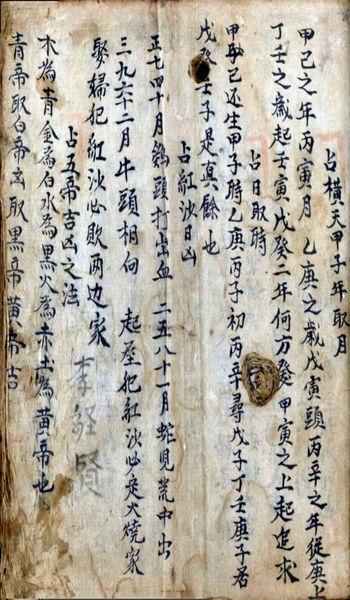 占橫天甲子年取月
甲己之年丙寅月 乙庚之歲戊寅頭 丙辛之年從庚上
丁壬之歲起壬寅 戊癸二年何方癸 甲寅之上起追求
占日取時
甲己还生甲子時 乙庚丙子初 丙辛尋戊子 丁壬庚子居
戊 壬子是真餘也
占紅沙日凶
正七四十月鷄頭打出血 二五八十一月蛇見荒中出
三九六十二月牛頭相向 起屋犯紅沙必定火燒家
娶婦犯紅沙必敗两边家
占五帝吉凶之法
李經賢
木為青金為白水為黑火為赤土為黃帝也
青帝取白帝凶取黑帝黃帝吉